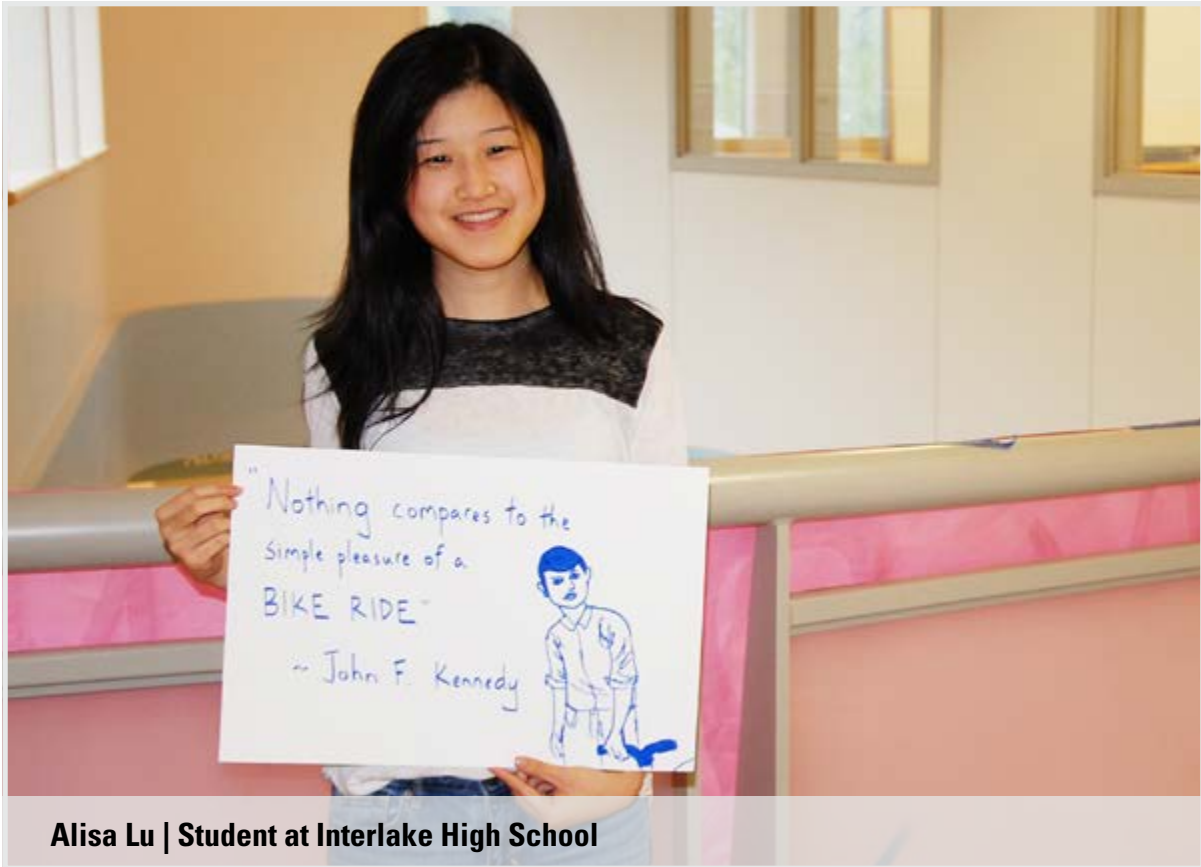 "Nothing compares to the
simple pleasure of a
BIKE RIDE"
~ John F. Kennedy
Alisa Lu | Student at Interlake High School